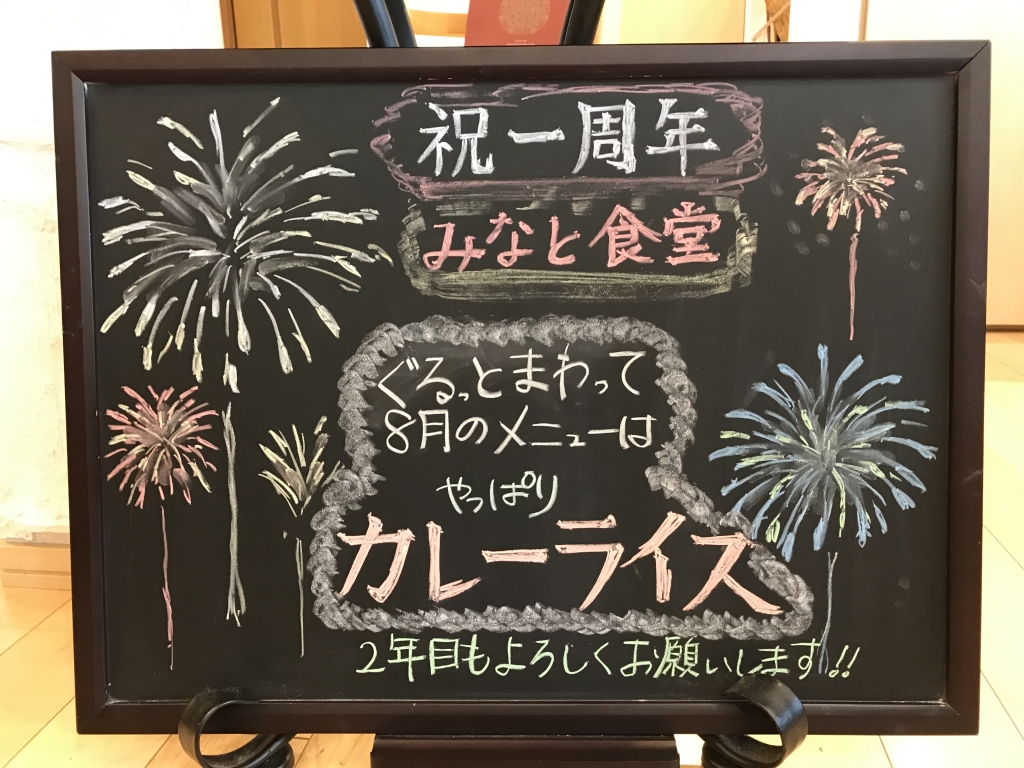 祝一周年
みなと食堂
ぐるっとまわって
8月のメニューは
やっぱり
カレーライス
2年目もよろしくお願いします!!